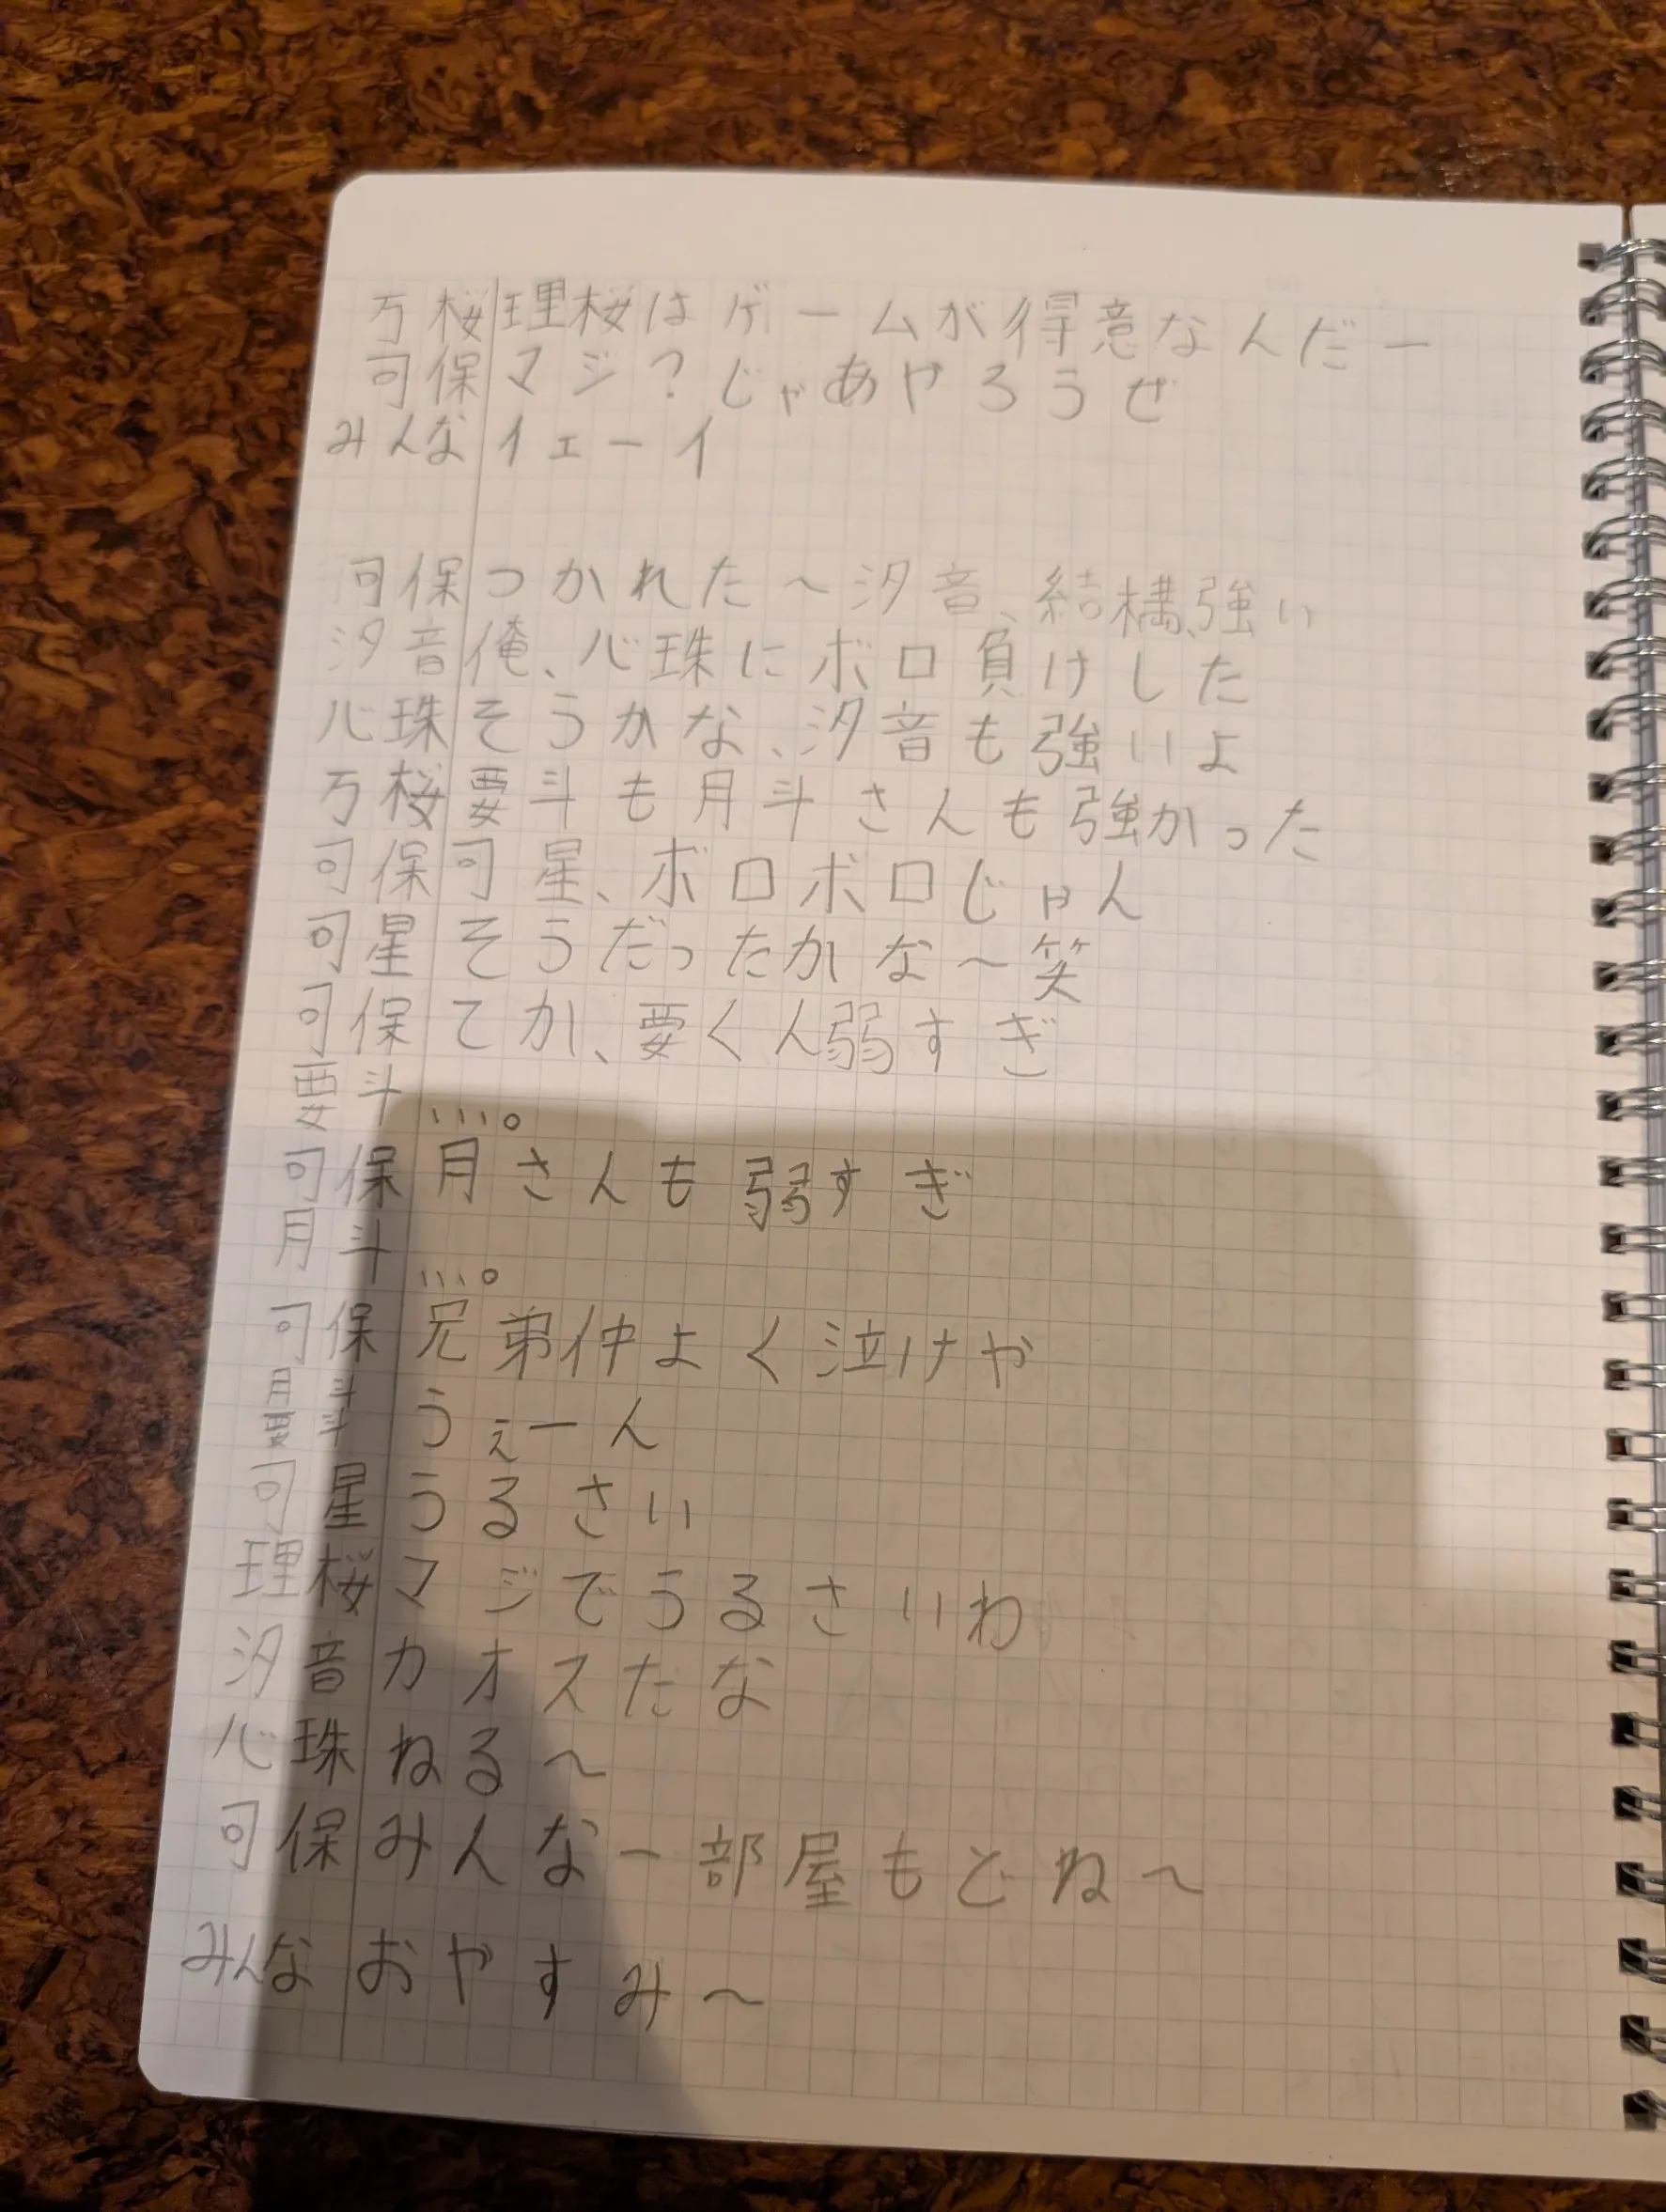 万桜 理桜はゲームが得意なんだー
可保 マジ？じゃあやろうぜ
みんな イェーイ
可保 つかれた～汐音、結構、強い
汐音 俺、心珠にボロ負けした
心珠 そうかな、汐音も強いよ
万桜 要斗も月斗さんも強かった
可保 可星、ボロボロじゃん
可星 そうだったかな～笑
可保 てか、要くん弱すぎ
要斗 ....。
可保 月さんも弱すぎ
月斗 ....。
可保 兄弟仲よく泣けや
月斗 要斗 うぇーん
可星 うるさい
理桜 マジでうるさいわ
汐音 カオスだな
心珠 ねる～
可保 みんなー部屋もどね～
みんな おやすみ～